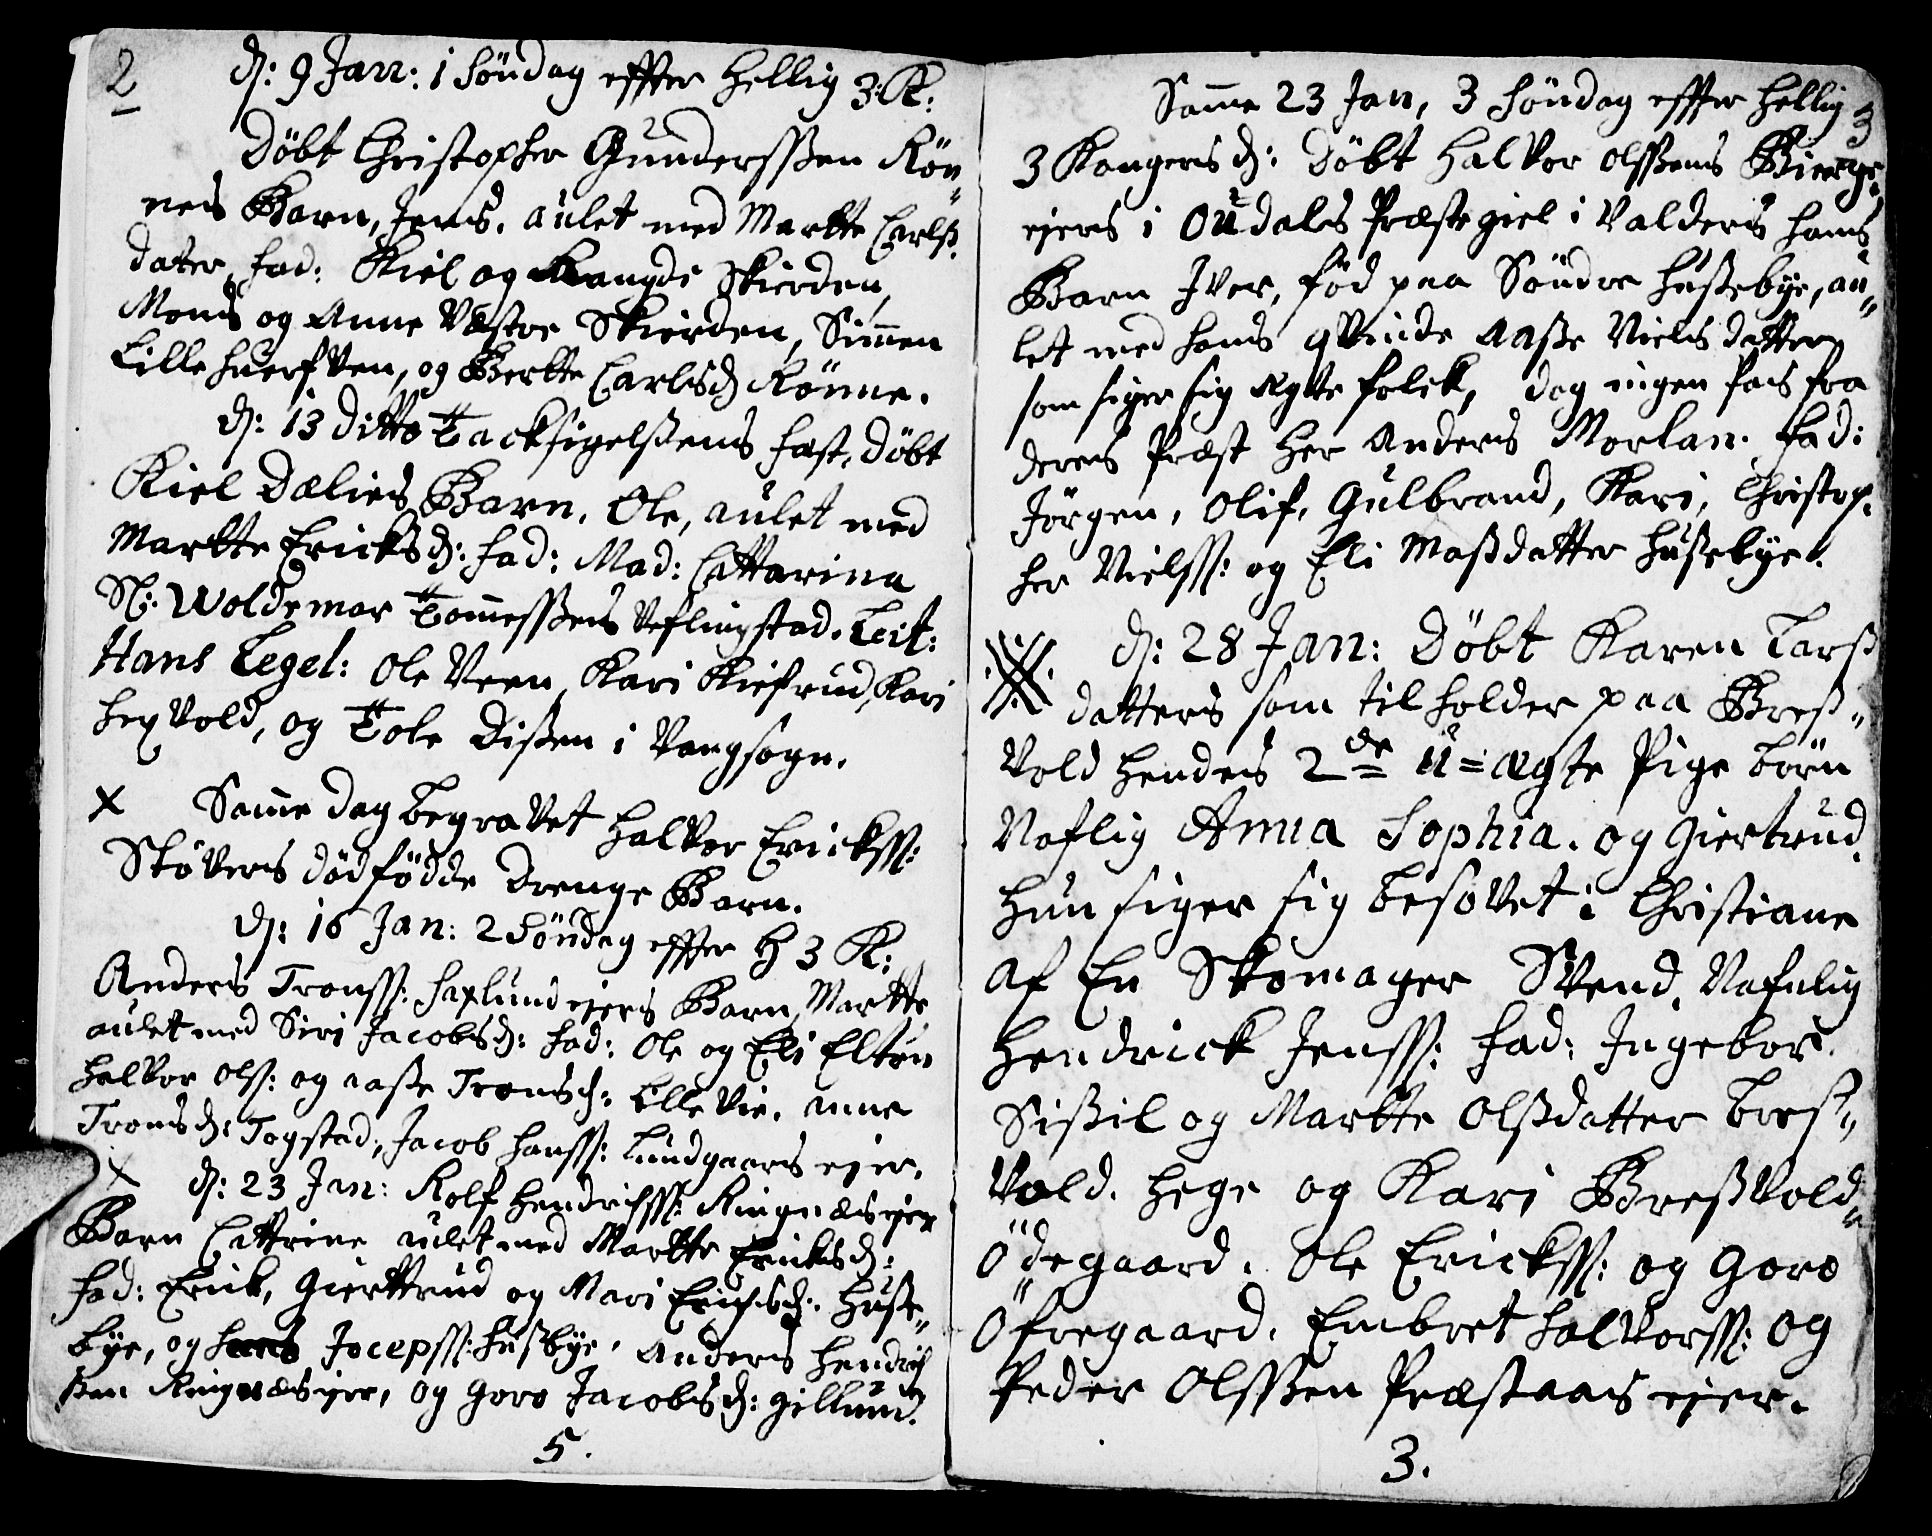 2
d: 9 Jan: 1 Söndag effter Hellig 3: K:
Döbt Christopher Gunderssßen Rön„
nes Barn, Jens, aulet med Martte Carlß
dater, fad: Kiel og Rangde Skierden,
Mons og Anne Væstre Skierden, Simen
Lille huerfven, og Bertte Carlsd Rönne.
d: 13 Ditto Tacksigelßens fæst, Döbt
Kiel Dælies Barn, Ole, aulet med
Martte Ericksd: fad: Mad: Cattarina
Sl: Woldemar Tomessßens Veflingstad. Leit:
Hans Legel: Ole Veen, Kari Kiefrud, Kari
Hexvold, og Tole Dißen i Vangsogn.
x Same Dag begravet Halvor Erickss:
Stövers Dödfödde Drenge Barn.
d: 16 Jan: 2 Söndag effter H 3 K:
Anders Tronss: Haxlund ejers Barn, Martte
aulet med Siri Jacobsd: fad: Ole og Eli Elton
Halvor Ols: og Aaße Tronsd: Lille Vie. Anne
Tronsd: Togstad, Jacob Hanss: Lundgaars ejer.
x d: 23 Jan: Rolf Hendrichss: Ringnæs ejer
Barn Cattrine aulet med Martte Ericksd:
fad: Erick, Gierttrud og Mari Erichsd: Huße„
bye, og Jocepss: Hußbye. Anders Hendrich
ßen Ringnæs ejer, og Goro Jacobsd: Gillund.
5.
3
Same 23 Jan, 3 Söndag effter Hellig
3 Kongersd: Döbt Halvor Olsßens Bierge„
ejers i Oudals Præstegiel i Valders hans
Barn Iver, föd paa Söndre Hußebye, au„
let med hans qvinde Aaße Niels datter
som siger sig ægte folck, dog ingen Pas fra
deres Præst Her Anders Morlan. fad:
Jörgen, Olif, Gulbrand, Kari, Christop„
her Nielss: og Eli Maßdatter Hußebye.
d: 28 Jan: Döbt Karen Larß
datters som til holder paa Breß„
vold hendes 2de u=ægte Pige börn
Naflig Anna Sophia. og Giertrud.
Hun siger sig besovet i Christiane
af En Skomager Svend, Nafnlig
Hendrick Jenss: fad: Ingebor.
Sißil og Martte Olßdatter Bres„
vold. Hege og Kari Breßvold„
Ödegaard. Ole Erickss: og Goro
Öfregaard. Embret Halvorss: og
Peder Olssßen Præstaas ejer.
3.